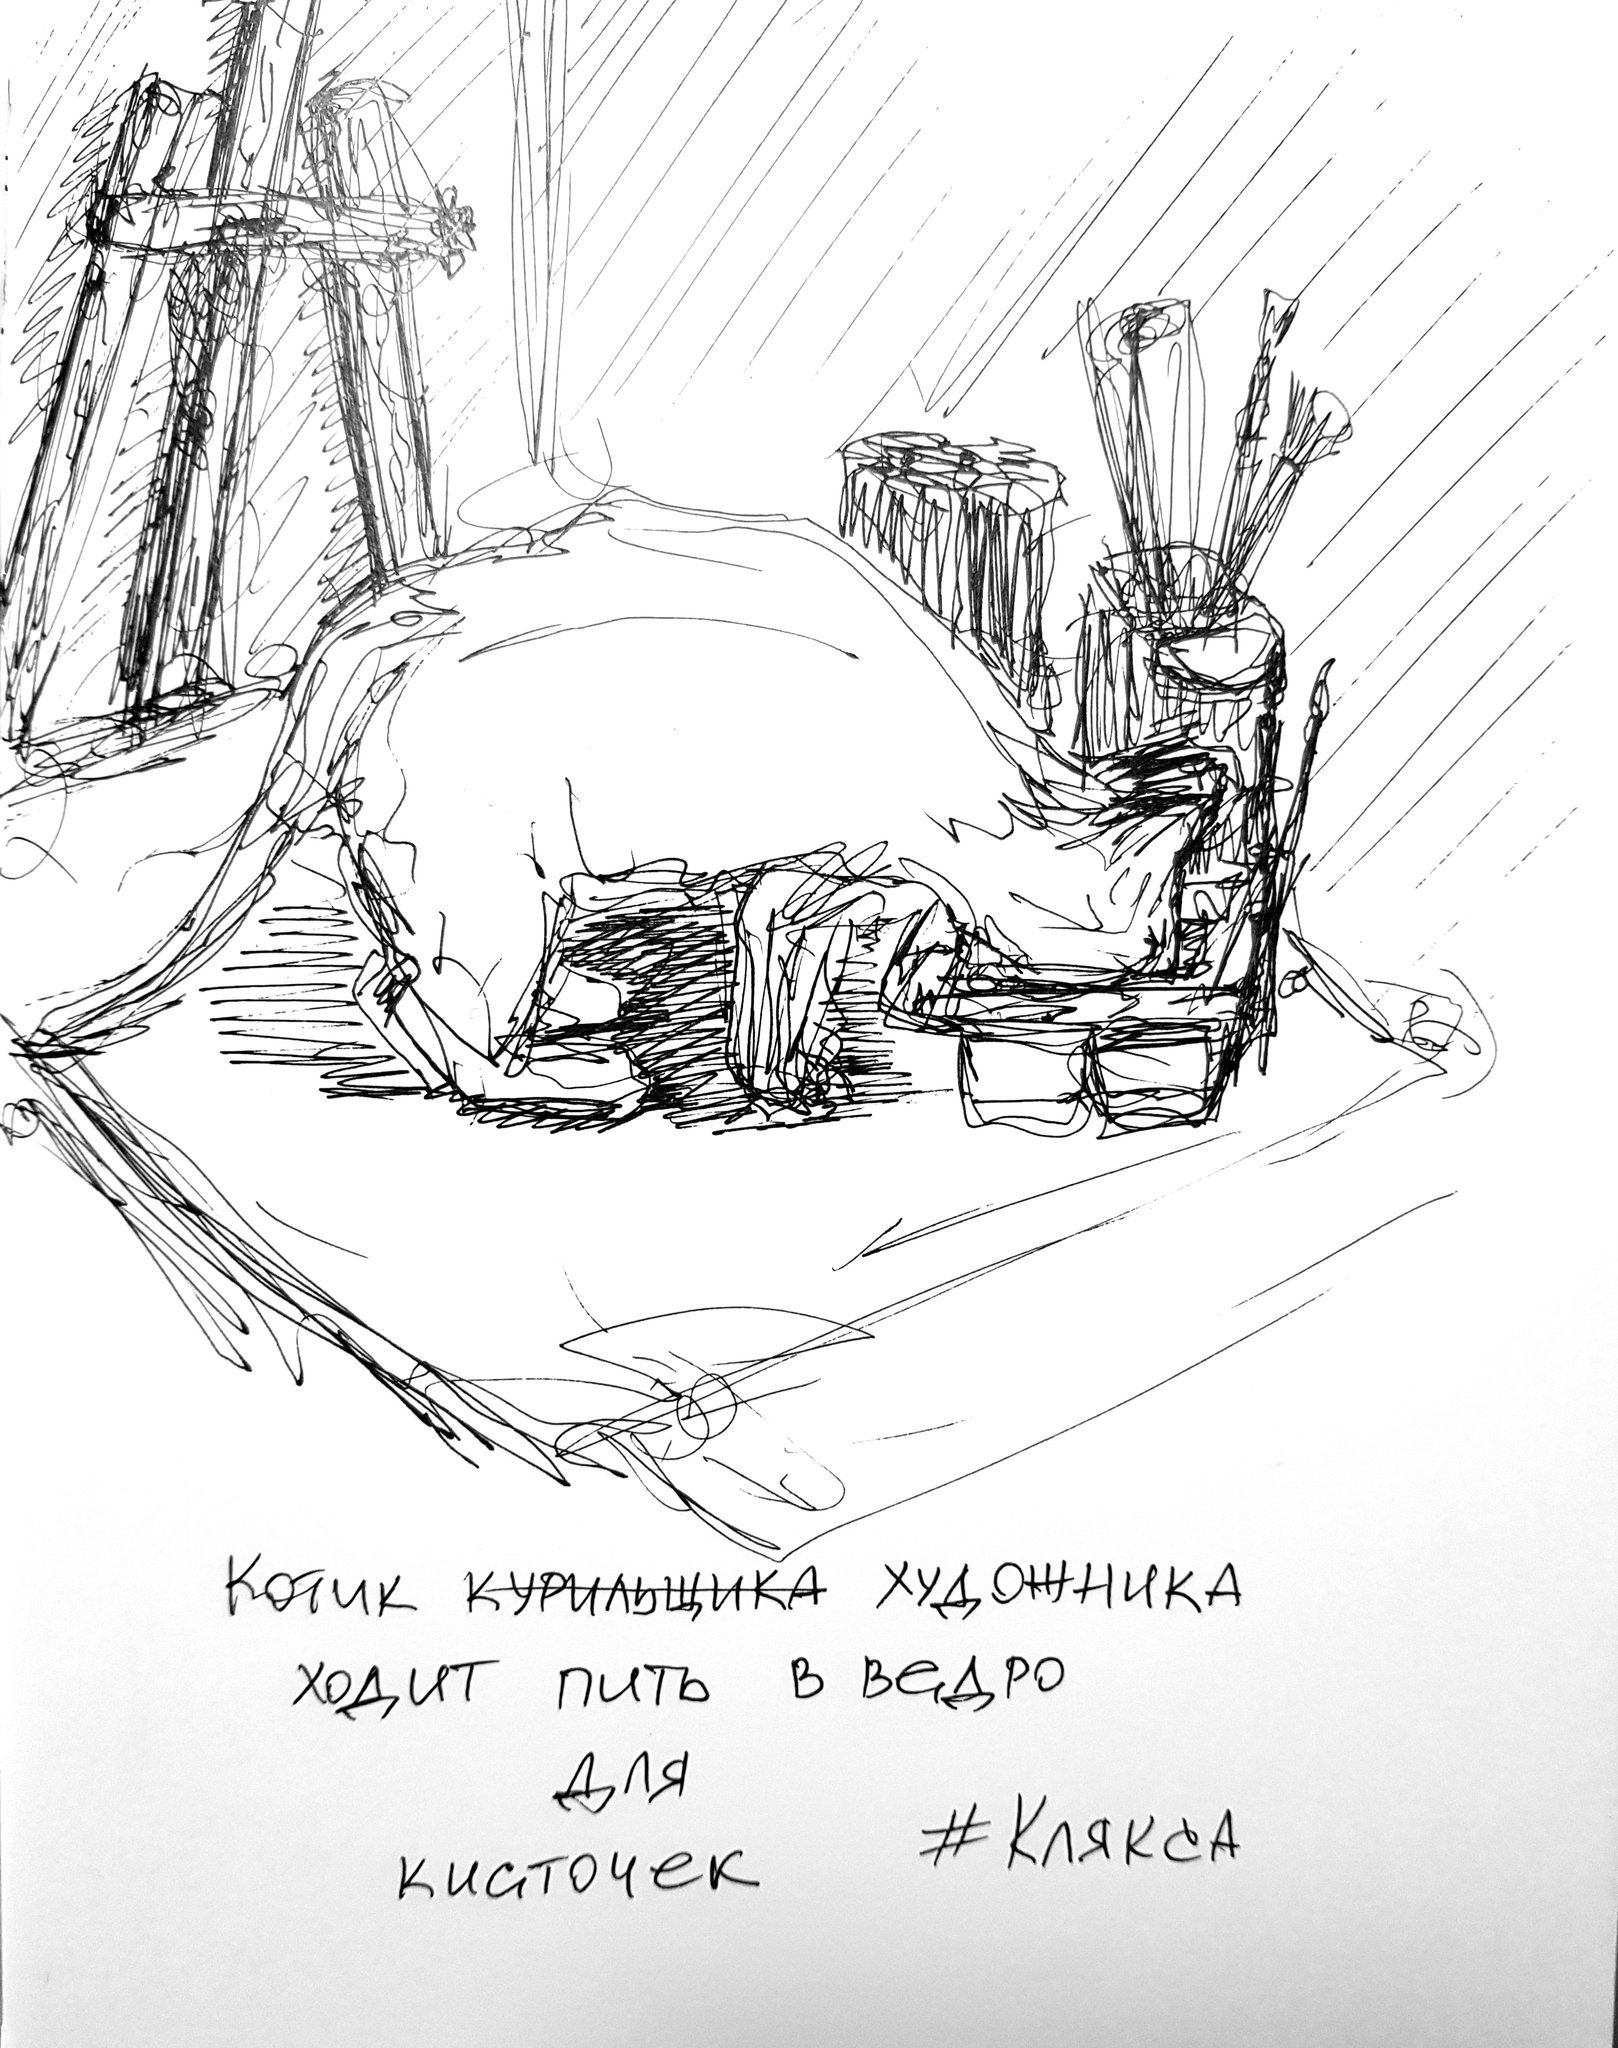 Котик курильщика художника
ходит пить в ведро
для
кисточек
#Клякса